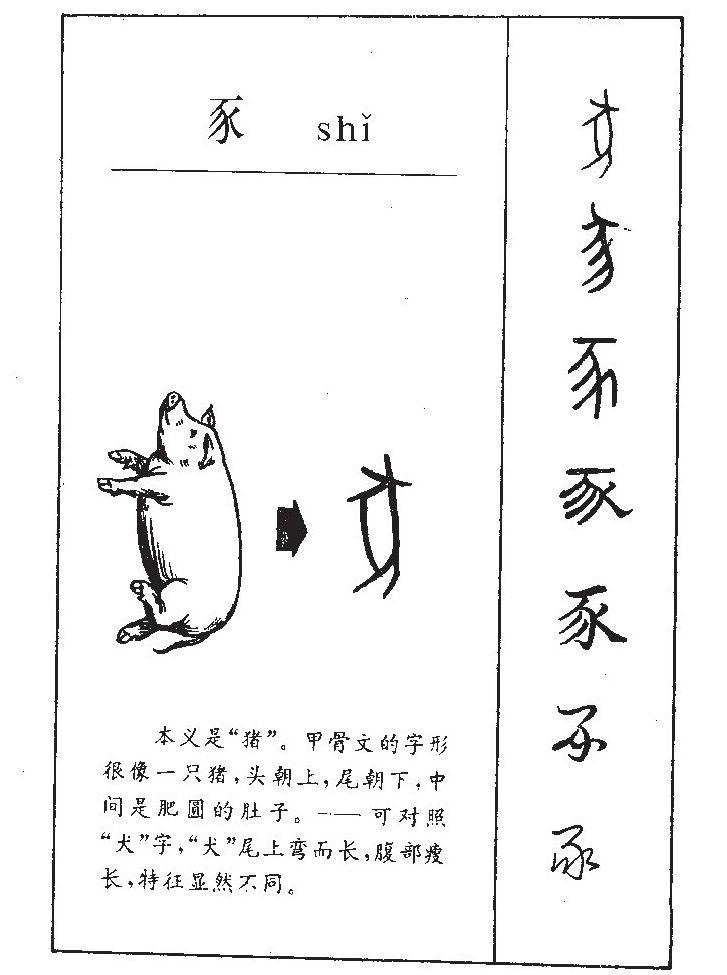 豕 shǐ
本义是“猪”。甲骨文的字形
很像一只猪，头朝上，尾朝下，中
间是肥圆的肚子。——可对照
“犬”字，“犬”尾上弯而长，腹部瘦
长，特征显然不同。
豕
豕
豕
豕
豕
豕
豕
豕